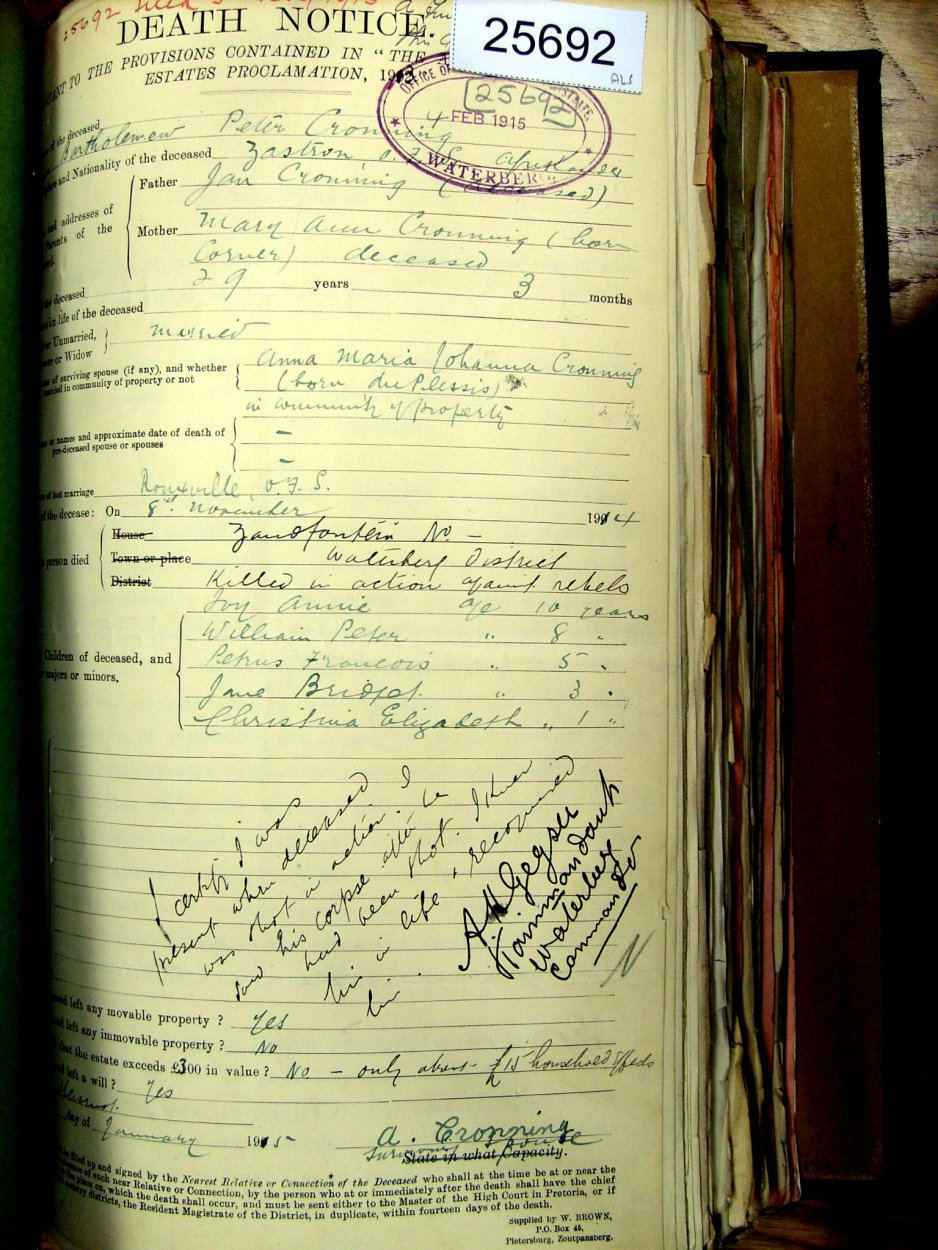 25692 filed
25692
ALS
DEATH NOTICE.
TO THE PROVISIONS CONTAINED IN "THE
ESTATES PROCLAMATION, 19
OFFICE OF
25692
4
FEB 1915
WATERBERG
of the deceased Bartholemew Peter Cronning
and Nationality of the deceased Zastron, O.F.S. Afrikander
and addresses of
Parents of the
Father Jan Cronning (deceased)
Mother Mary Ann Cronning (born
Corner) deceased
the deceased 29 years 3 months
in life of the deceased
or Unmarried,
or Widow
married
of surviving spouse (if any), and whether
married in community of property or not
Anna Maria Johanna Cronning
(born du Plessis)
in community of property
or names and approximate date of death of
pre-deceased spouse or spouses
-
-
of last marriage Rouxville, O.F.S.
of the decease: On 8th November 1914
person died
House Zandfontein No. -
Town or place Waterberg District
District Killed in action against rebels
Children of deceased, and
majors or minors.
Ivy Annie age 10 years
William Peter " 8 "
Petrus Francois " 5 "
Jane Bridget " 3 "
Christina Elizabeth " 1 "
I certify I was
present when deceased
was shot in action. I
saw his corpse after he
had been shot. I knew
him in life & recognised
him.
A H Geyser
Kommandant
Waterberg
Commando
N
left any movable property ? Yes
left any immovable property ? No
that the estate exceeds £300 in value ? No - only about £15 household effects
left a will ? Yes
day of January 1915
A. Cronning
Surviving Spouse
State in what Capacity.
filled up and signed by the Nearest Relative or Connection of the Deceased who shall at the time be at or near the
of such near Relative or Connection, by the person who at or immediately after the death shall have the chief
place on, which the death shall occur, and must be sent either to the Master of the High Court in Pretoria, or if
country districts, the Resident Magistrate of the District, in duplicate, within fourteen days of the death.
Supplied by W. BROWN,
P.O. Box 45,
Pietersburg, Zoutpansberg.